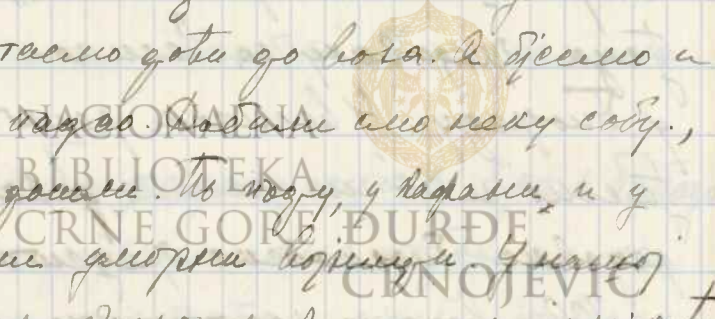 тасмо доћи до воза. А бјесмо и
падао. Добили смо неку собу.,
дошли. По поду, у кафани, и у
уморни војници. У нашој
NACIONALNA
BIBLIOTEKA
CRNE GORE ĐURĐE
CRNOJEVIĆ